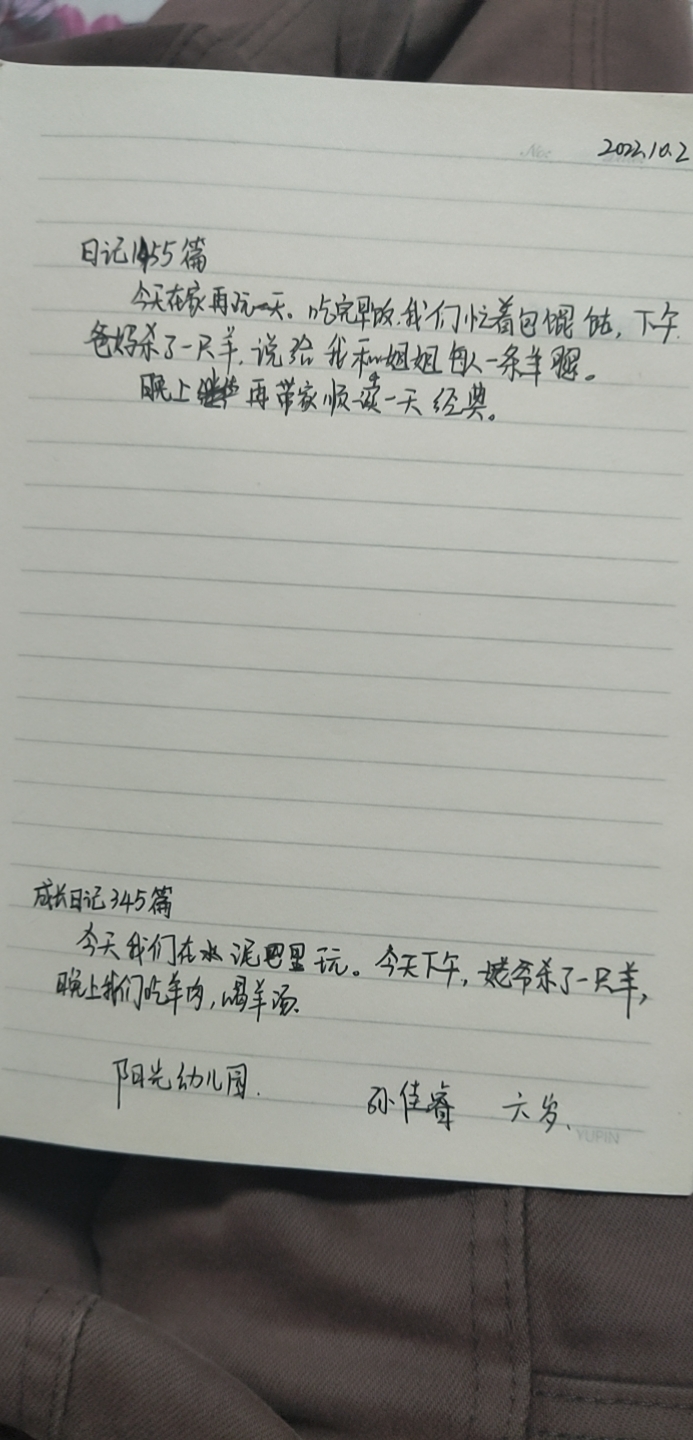 No:
2022.10.2
日记1455篇
今天在家再玩一天。吃完早饭,我们忙着包馄饨,下午
爸妈杀了一只羊,说给我和姐姐每人一条羊腿。
晚上再带家顺读一天经典。
成长日记345篇
今天我们在水泥巴里玩。今天下午,姥爷杀了一只羊,
晚上我们吃羊肉,喝羊汤.
阳光幼儿园. 孙佳睿 六岁、
YUPIN